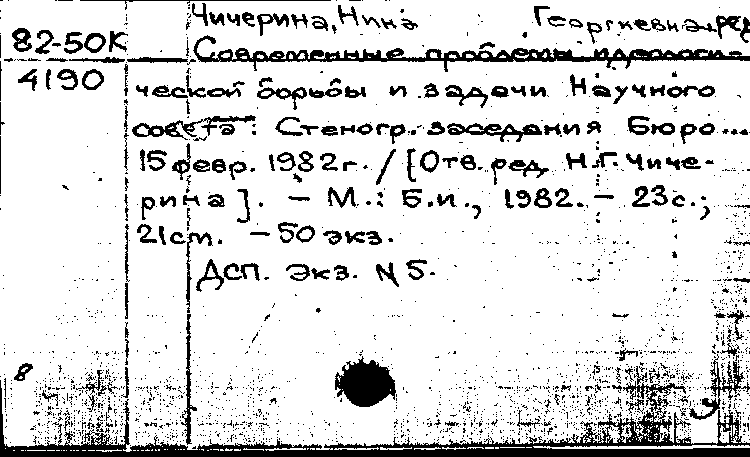 Чичерина, Нина Георгиевна, ред
82-50К Современные проблемы идеологи-
4190 ческой борьбы и задачи Научного
совета : Стеногр. заседания Бюро...
15 февр. 1982 г. / [Отв. ред. Н.Г. Чиче-
рина]. - М.: Б.и., 1982. - 23 с.;
21 cm. - 50 экз.
ДСП. Экз. N 5.
8